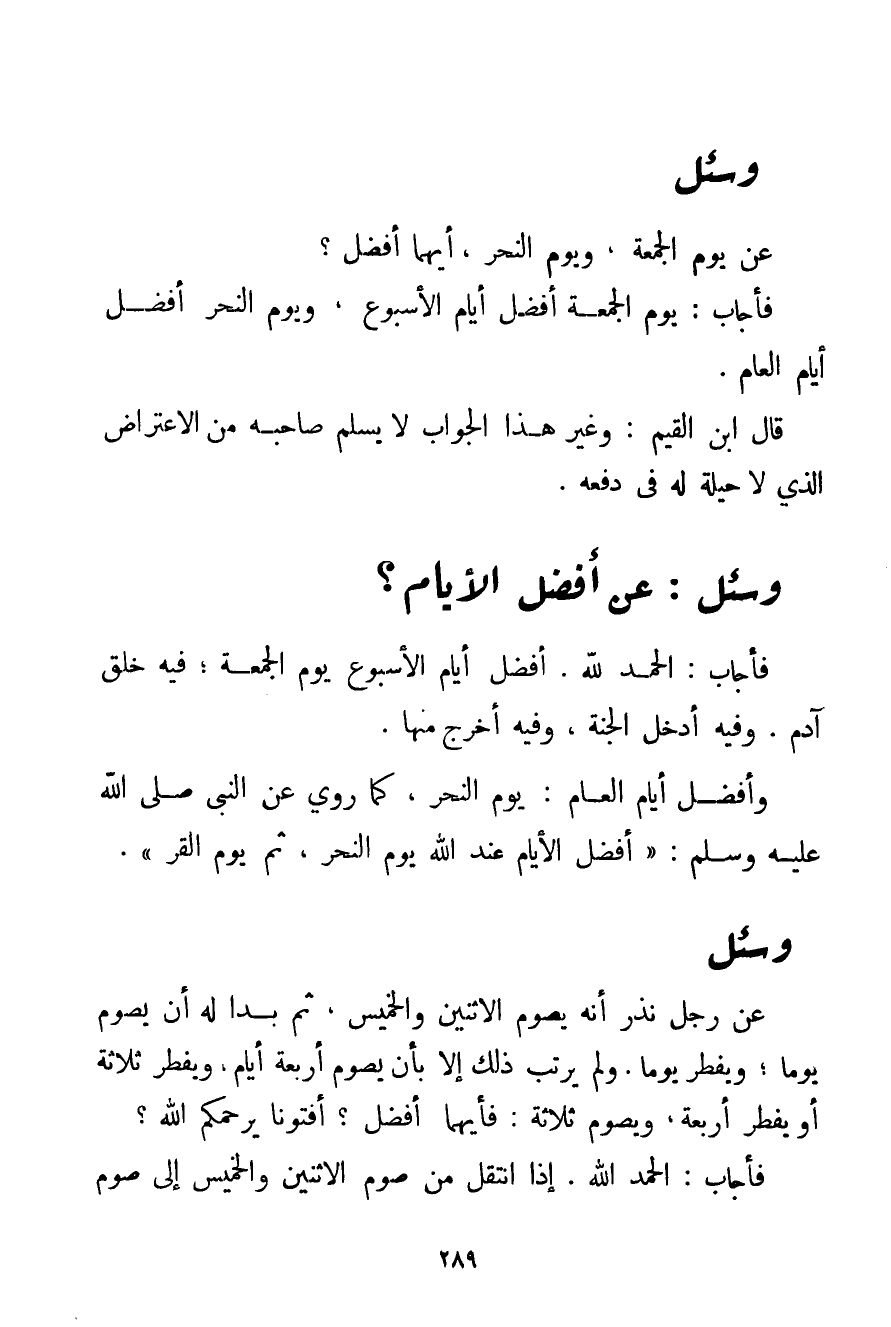 وسئل
عن يوم الجمعة ، ويوم النحر ، أيهما أفضل ؟
فأجاب : يوم الجمعة أفضل أيام الأسبوع ، ويوم النحر أفضل
أيام العام .
قال ابن القيم : وغير هذا الجواب لا يسلم صاحبه من الاعتراض
الذي لا حيلة له فى دفعه .
وسئل : عن أفضل الأيام ؟
فأجاب : الحمد لله . أفضل أيام الأسبوع يوم الجمعة ؛ فيه خلق
آدم . وفيه أدخل الجنة ، وفيه أخرج منها .
وأفضل أيام العام : يوم النحر ، كما روي عن النبى صلى الله
عليه وسلم : « أفضل الأيام عند الله يوم النحر ، ثم يوم القر » .
وسئل
عن رجل نذر أنه يصوم الاثنين والخميس ، ثم بدا له أن يصوم
يوما ؛ ويفطر يوما . ولم يرتب ذلك إلا بأن يصوم أربعة أيام ، ويفطر ثلاثة
أو يفطر أربعة ، ويصوم ثلاثة : فأيهما أفضل ؟ أفتونا يرحمكم الله ؟
فأجاب : الحمد الله . إذا انتقل من صوم الاثنين والخميس إلى صوم
٢٨٩